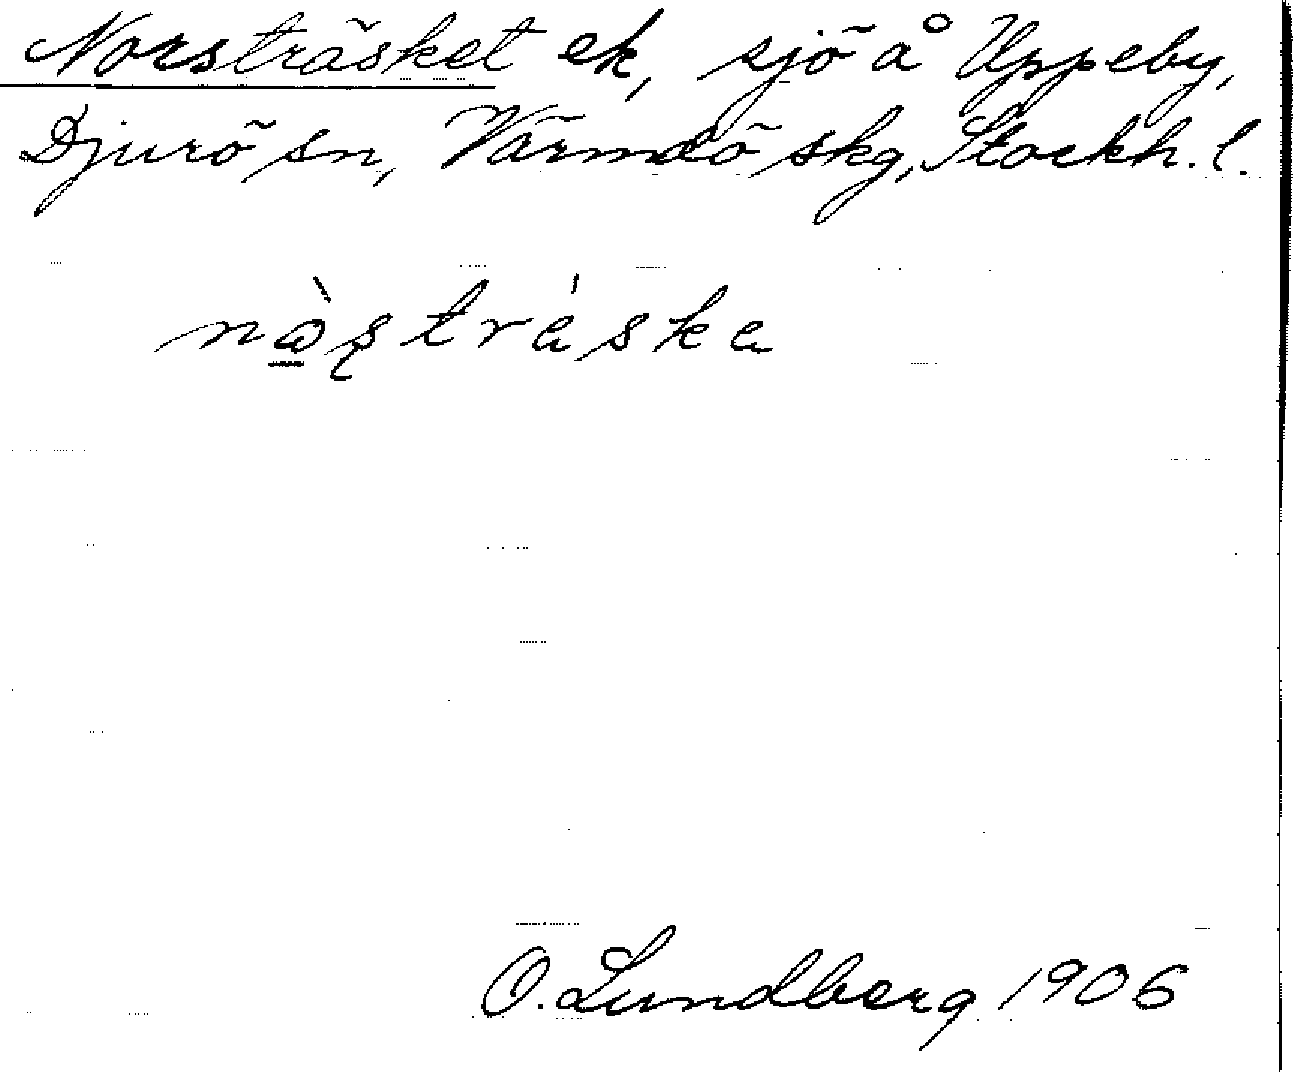 Norsträsket ek, sjö å Uppeby,
Djurö sn, Värmdö skg, Stockh. l.
nòstráska
O. Lundberg 1906